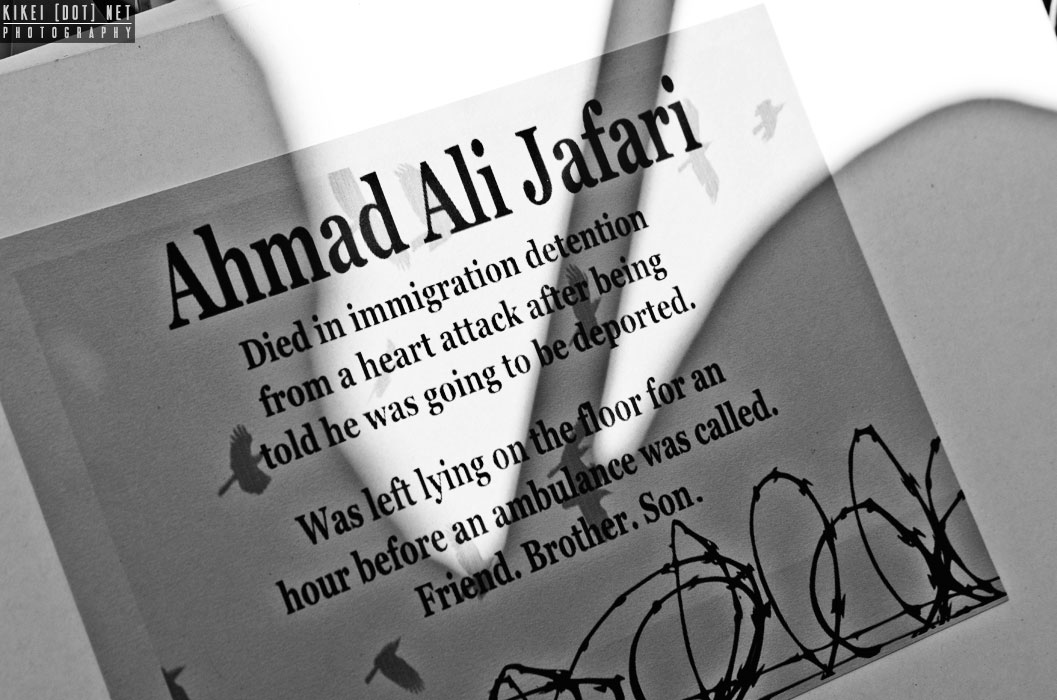 KIKEI [DOT] NET
PHOTOGRAPHY
Ahmad Ali Jafari
Died in immigration detention
from a heart attack after being
told he was going to be deported.
Was left lying on the floor for an
hour before an ambulance was called.
Friend. Brother. Son.